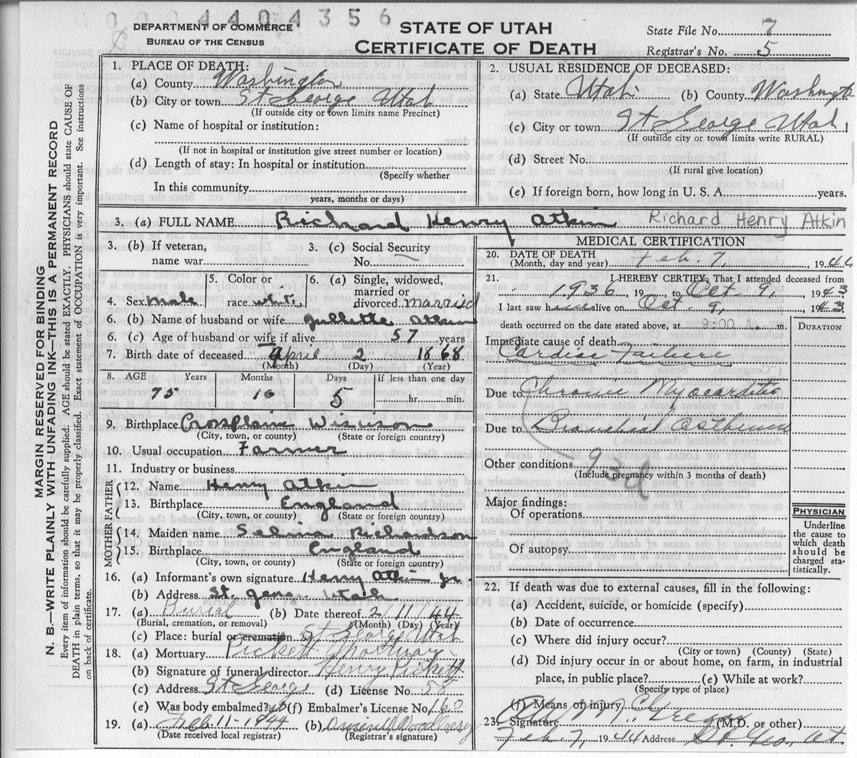 0004404356
DEPARTMENT OF COMMERCE
BUREAU OF THE CENSUS
STATE OF UTAH
CERTIFICATE OF DEATH
State File No. 7
Registrar's No. 5
MARGIN RESERVED FOR BINDING
N. B.—WRITE PLAINLY WITH UNFADING INK—THIS IS A PERMANENT RECORD
Every item of information should be carefully supplied. AGE should be stated EXACTLY. PHYSICIANS should state CAUSE OF
DEATH in plain terms, so that it may be properly classified. Exact statement of OCCUPATION is very important. See instructions
on back of certificate.
1. PLACE OF DEATH:
(a) County Washington
(b) City or town St George Utah
(If outside city or town limits name Precinct)
(c) Name of hospital or institution:
(If not in hospital or institution give street number or location)
(d) Length of stay: In hospital or institution
(Specify whether
In this community
years, months or days)
2. USUAL RESIDENCE OF DECEASED:
(a) State Utah (b) County Washington
(c) City or town St George Utah
(If outside city or town limits write RURAL)
(d) Street No.
(If rural give location)
(e) If foreign born, how long in U. S. A. years.
3. (a) FULL NAME Richard Henry Atkin Richard Henry Atkin
3. (b) If veteran,
name war
3. (c) Social Security
No.
4. Sex male
5. Color or
race white
6. (a) Single, widowed,
married or
divorced married
6. (b) Name of husband or wife Atkin
6. (c) Age of husband or wife if alive 57 years
7. Birth date of deceased April 2 1868
(Month) (Day) (Year)
8. AGE Years Months Days If less than one day
75 10 5 hr. min.
9. Birthplace
(City, town, or county) (State or foreign country)
10. Usual occupation Farmer
11. Industry or business
FATHER
12. Name Henry Atkin
13. Birthplace England
(City, town, or county) (State or foreign country)
MOTHER
14. Maiden name Richardson
15. Birthplace England
(City, town, or county) (State or foreign country)
16. (a) Informant's own signature Henry Atkin Jr.
(b) Address St. George Utah
17. (a) Burial (b) Date thereof 2 11 44
(Burial, cremation, or removal) (Month) (Day) (Year)
(c) Place: burial or cremation St George Utah
18. (a) Mortuary Pickett Mortuary
(b) Signature of funeral director Henry Pickett
(c) Address St George (d) License No. 58
(e) Was body embalmed? (f) Embalmer's License No. 160
19. (a) Feb 11-1944 (b)
(Date received local registrar) (Registrar's signature)
MEDICAL CERTIFICATION
20. DATE OF DEATH
(Month, day and year) Feb. 7, 1944
21. I HEREBY CERTIFY, That I attended deceased from
1936, 19 to Oct 9, 1943
I last saw alive on Oct. 9, 1943
death occurred on the date stated above, at 9:00 m.
DURATION
Immediate cause of death
Cardiac Failure
Due to Chronic Myocarditis
Due to Bronchial Asthma
Other conditions 93d
(Include pregnancy within 3 months of death)
Major findings:
Of operations
Of autopsy
PHYSICIAN
Underline
the cause to
which death
should be
charged sta-
tistically.
22. If death was due to external causes, fill in the following:
(a) Accident, suicide, or homicide (specify)
(b) Date of occurrence
(c) Where did injury occur?
(City or town) (County) (State)
(d) Did injury occur in or about home, on farm, in industrial
place, in public place? (e) While at work?
(Specify type of place)
(f) Means of injury
23. Signature (M.D. or other)
Feb 7, 1944 Address St. Geo. Ut.